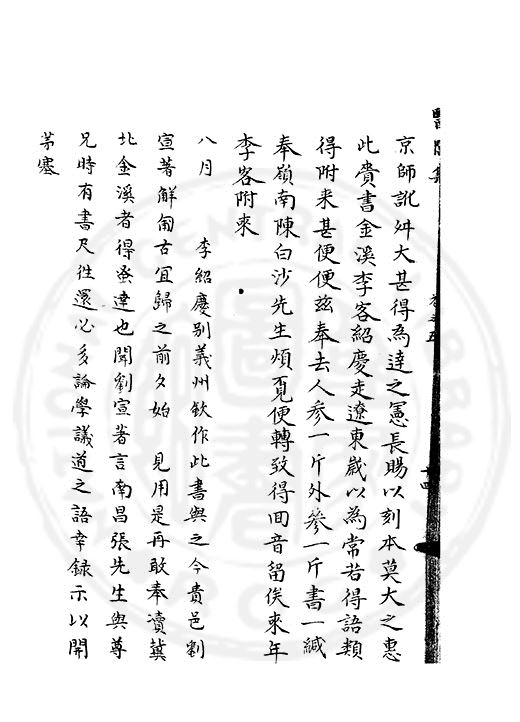 醫閭集
京師訛舛大甚得為達之憲長賜以刻本莫大之惠
此貴書金溪李客紹慶走遼東歲以為常若得語類
得附来甚便便茲奉去人参一斤外參一斤書一緘
奉嶺南陳白沙先生煩覔便轉致得囬音留俟來年
李客附來
八月　李紹慶别義州欽作此書與之今貴邑劉
宣著解匍古宜歸之前欠始　見用是再敢奉瀆冀
北金溪者得蚤達也聞劉宣著言南昌張先生與尊
兄時有書尺徃還必多論學議道之語幸録示以開
茅塞